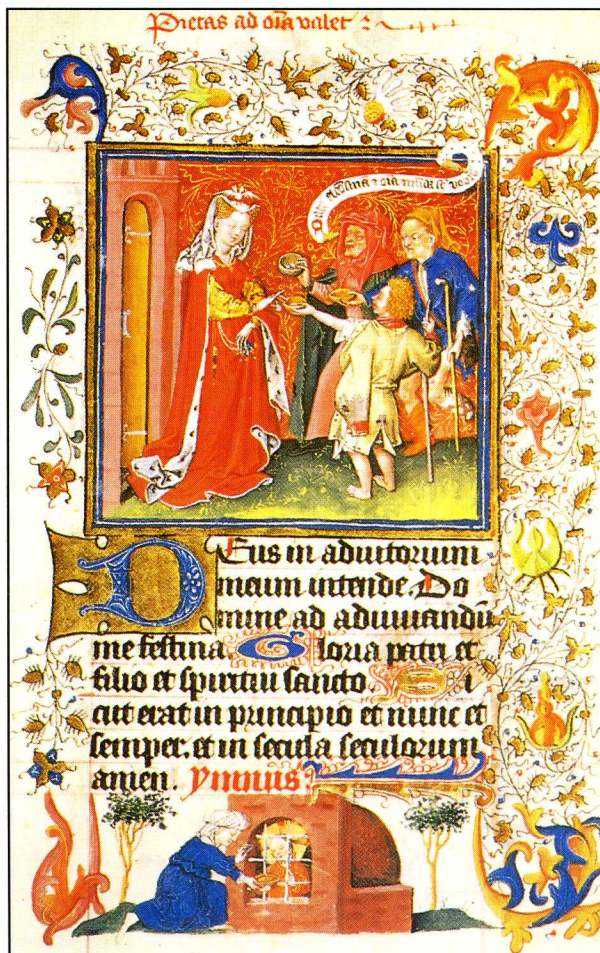 Pietas ad oīa valet
Date et
Deus in adiutorium
meum intende. Do
mine ad adiuuandū
me festina. Gloria patri et
filio et spiritui sancto Si
cut erat in principio et nunc et
semper, et in secula seculorum
amen. ymnus